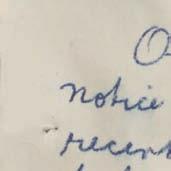 O
notice
recent